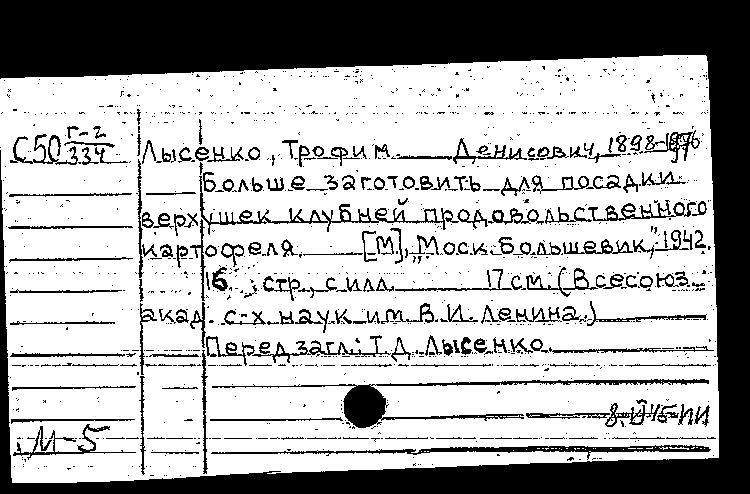 С50 Г-2/334 Лысенко, Трофим Денисович, 1898-1976
Больше заготовить для посадки
верхушек клубней продовольственного
картофеля. [М], „Моск. большевик", 1942.
16 стр., с илл. 17 см. (Всесоюз.
акад. с-х. наук им. В. И. Ленина.)
Перед загл.: Т. Д. Лысенко.
М-5